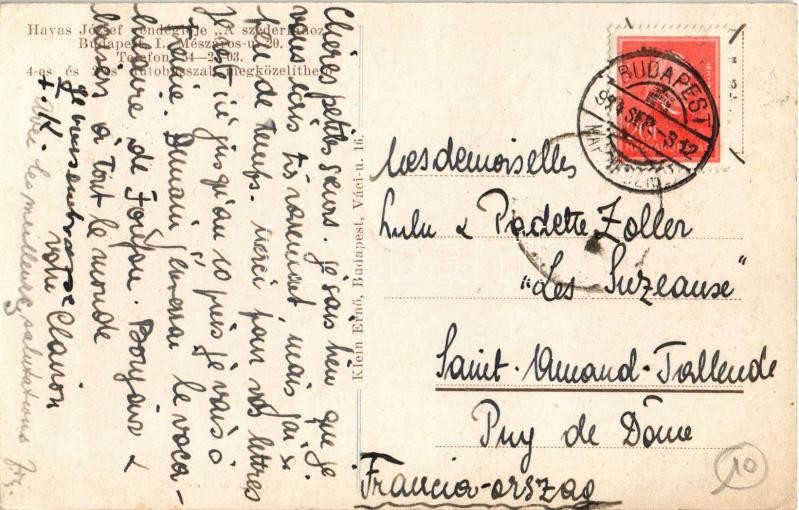 Havas József vendéglője „A szederfához"
Budapest, I., Mészáros-u. 20.
Telefon
4-es és autobusszal megközelíthető
Chères petites sœurs je sais bien que je
vous écris très rarement mais j'ai si
peu de temps. Merci pour vos lettres
Je suis ici jusqu'au 10 puis je vais à
Demain j'enverrai le voca-
bulaire de Bonjour &
baisers à tout le monde
je vous embrasse
+ AK. votre Clairon
avec les meilleures salutations
Klein Ernő, Budapest, Váci-u. 16.
BUDAPEST
MAGYAR
Mesdemoiselles
Lulu & Padette Zoller
"Les Suzeause"
Saint-Amand-Tallende
Puy de Dôme
Francia-orszag
10